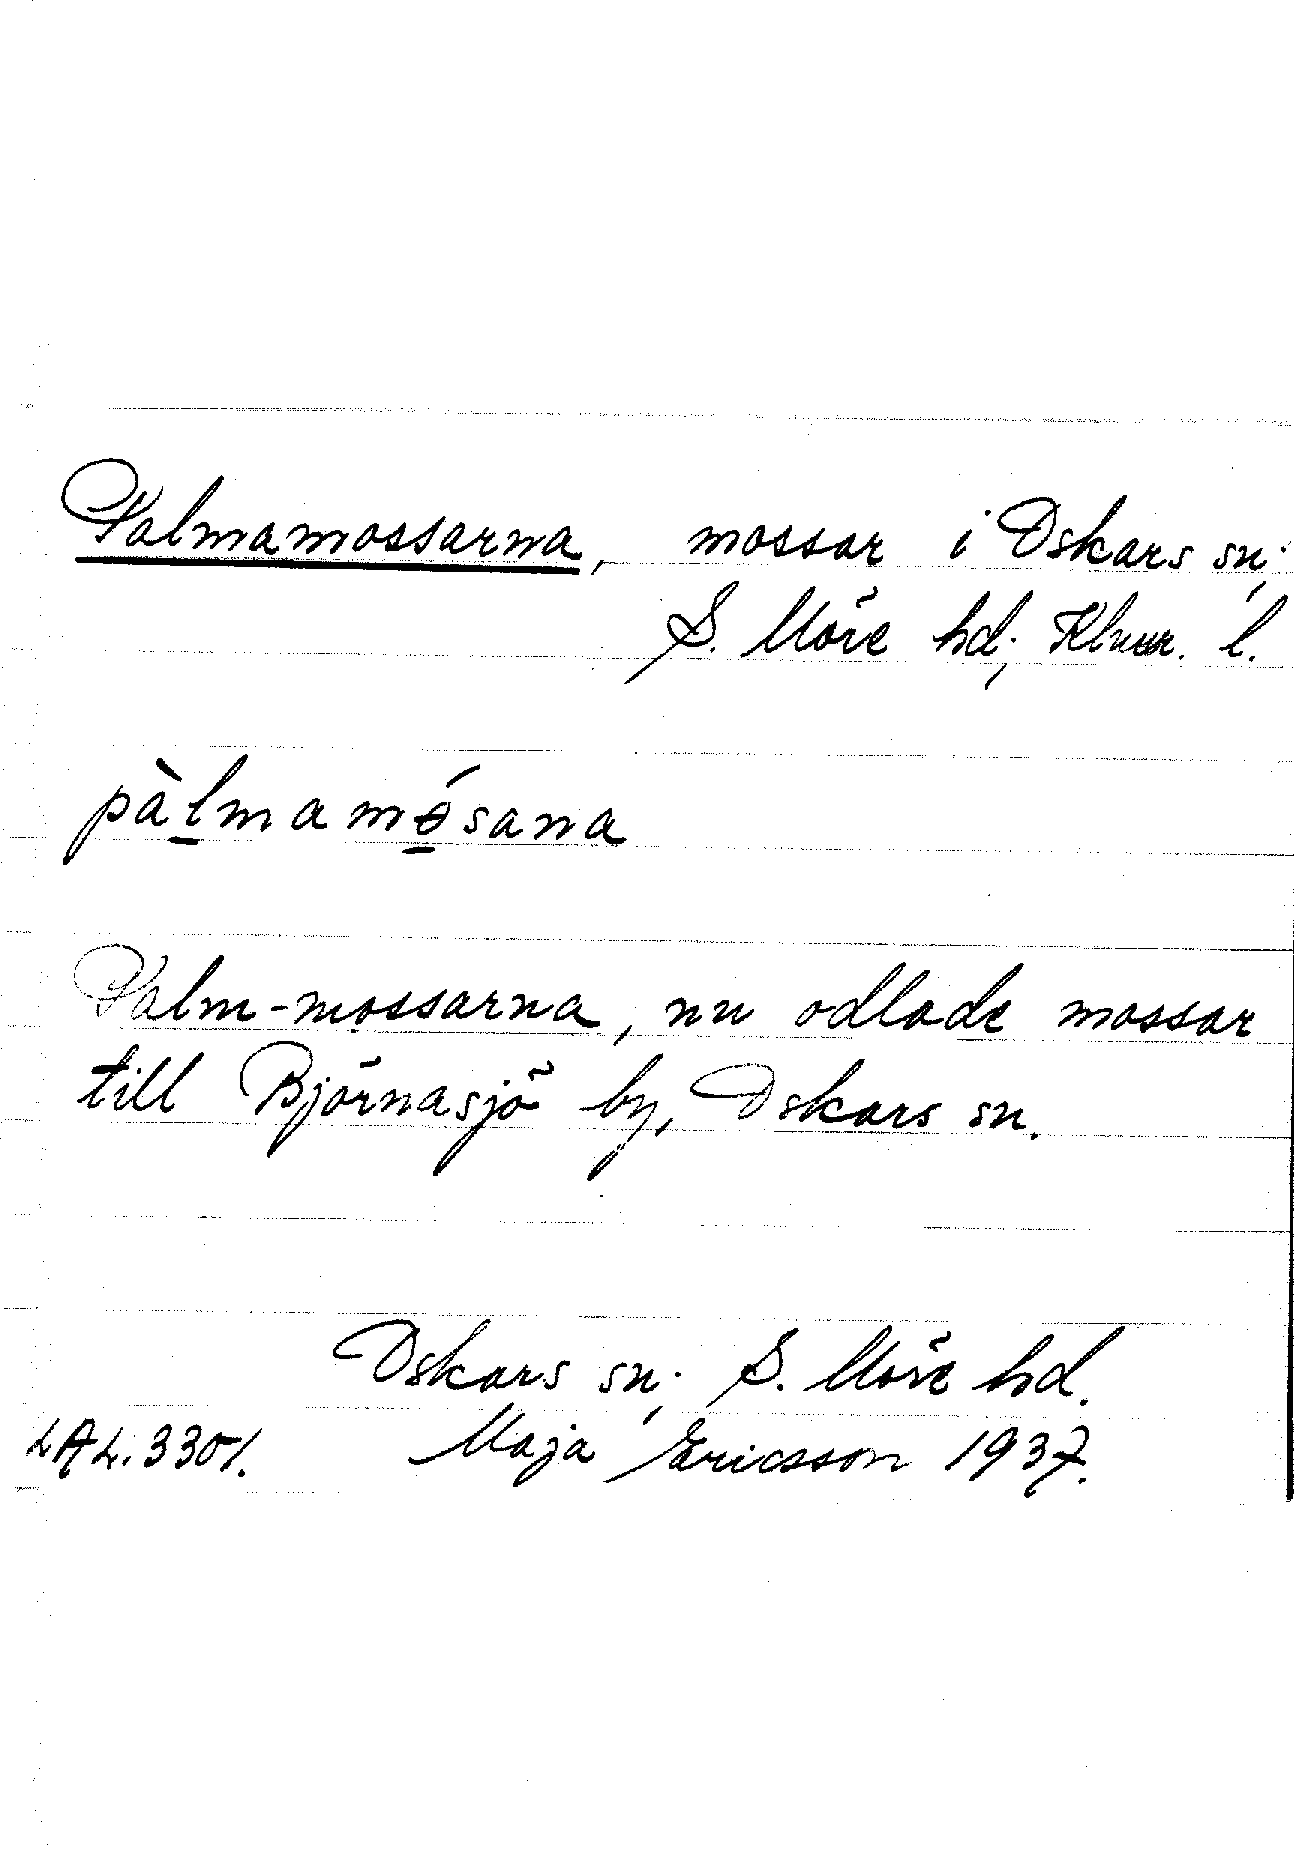 Palmamossarna, mossar i Oskars sn;
S. Möre hd; Klmr. l.
pàlmamósana
Palm-mossarna, nu odlade mossar
till Björnasjö by, Oskars sn.
Oskars sn; S. Möre hd.
LAL. 3301. Maja Ericsson 1937.